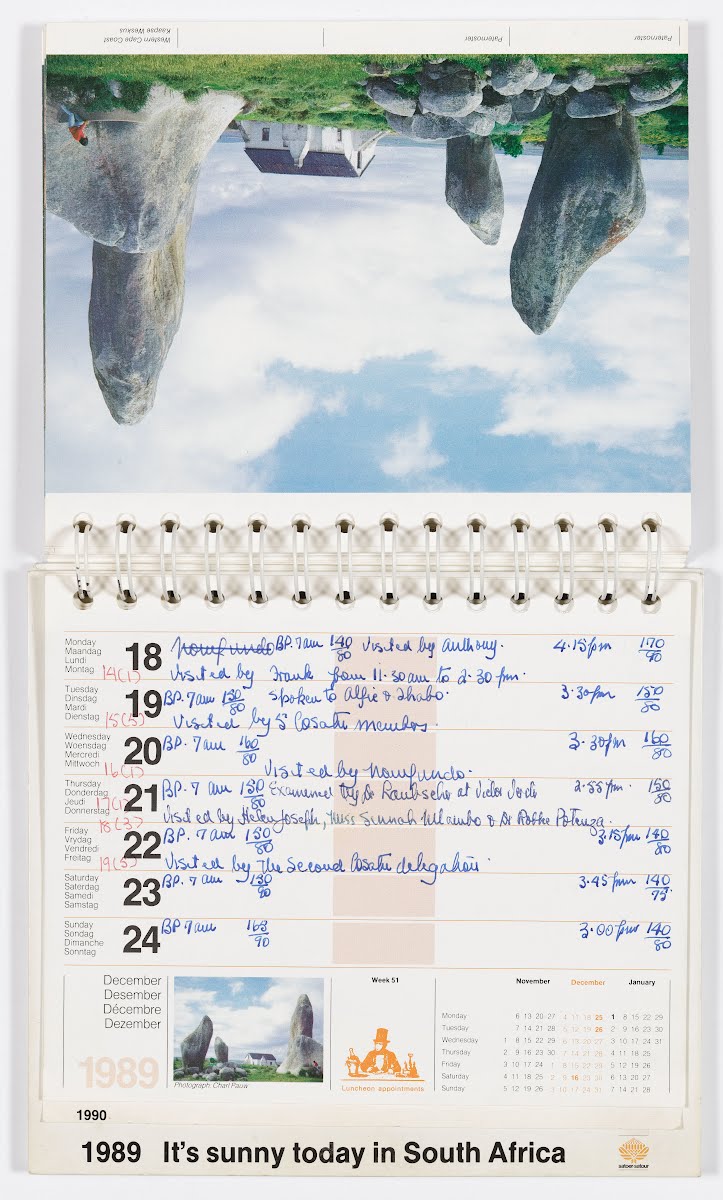 Western Cape Coast
Kaapse Weskus
Paternoster
Paternoster
Monday
Maandag
Lundi
Montag
18
14(1)
Nomfundo BP. 7am 140/80 Visited by Anthony. 4.15pm 170/90
Visited by Frank from 11.30am to 2.30 pm.
Tuesday
Dinsdag
Mardi
Dienstag
19
15(5)
BP. 7am 150/80 Spoken to Alfie & Thabo. 3.30pm 150/80
Visited by 5 Cosatu members.
Wednesday
Woensdag
Mercredi
Mittwoch
20
16(1)
BP. 7am 160/80 3.30pm 160/80
Visited by Nomfundo.
Thursday
Donderdag
Jeudi
Donnerstag
21
18(3)
BP. 7 am 150/80 Examined by Dr at Victor 2.55pm 150/80
Visited by Helen Joseph, Miss & Dr
Friday
Vrydag
Vendredi
Freitag
22
19(5)
BP. 7am 150/80 3.15pm 140/80
Visited by the Second Cosatu delegation.
Saturday
Saterdag
Samedi
Samstag
23
BP. 7 am 3.45pm 140/75.
Sunday
Sondag
Dimanche
Sonntag
24
BP 7am 3.00pm 140/80
December
Desember
Décembre
Dezember
1989
Photograph: Charl Pauw
Week 51
Luncheon appointments
November December January
Monday 6 13 20 27 4 11 18 25 1 8 15 22 29
Tuesday 7 14 21 28 5 12 19 26 2 9 16 23 30
Wednesday 1 8 15 22 29 6 13 20 27 3 10 17 24 31
Thursday 2 9 16 23 30 7 14 21 28 4 11 18 25
Friday 3 10 17 24 1 8 15 22 29 5 12 19 26
Saturday 4 11 18 25 2 9 16 23 30 6 13 20 27
Sunday 5 12 19 26 3 10 17 24 31 7 14 21 28
1990
1989 It's sunny today in South Africa
satoer·satour